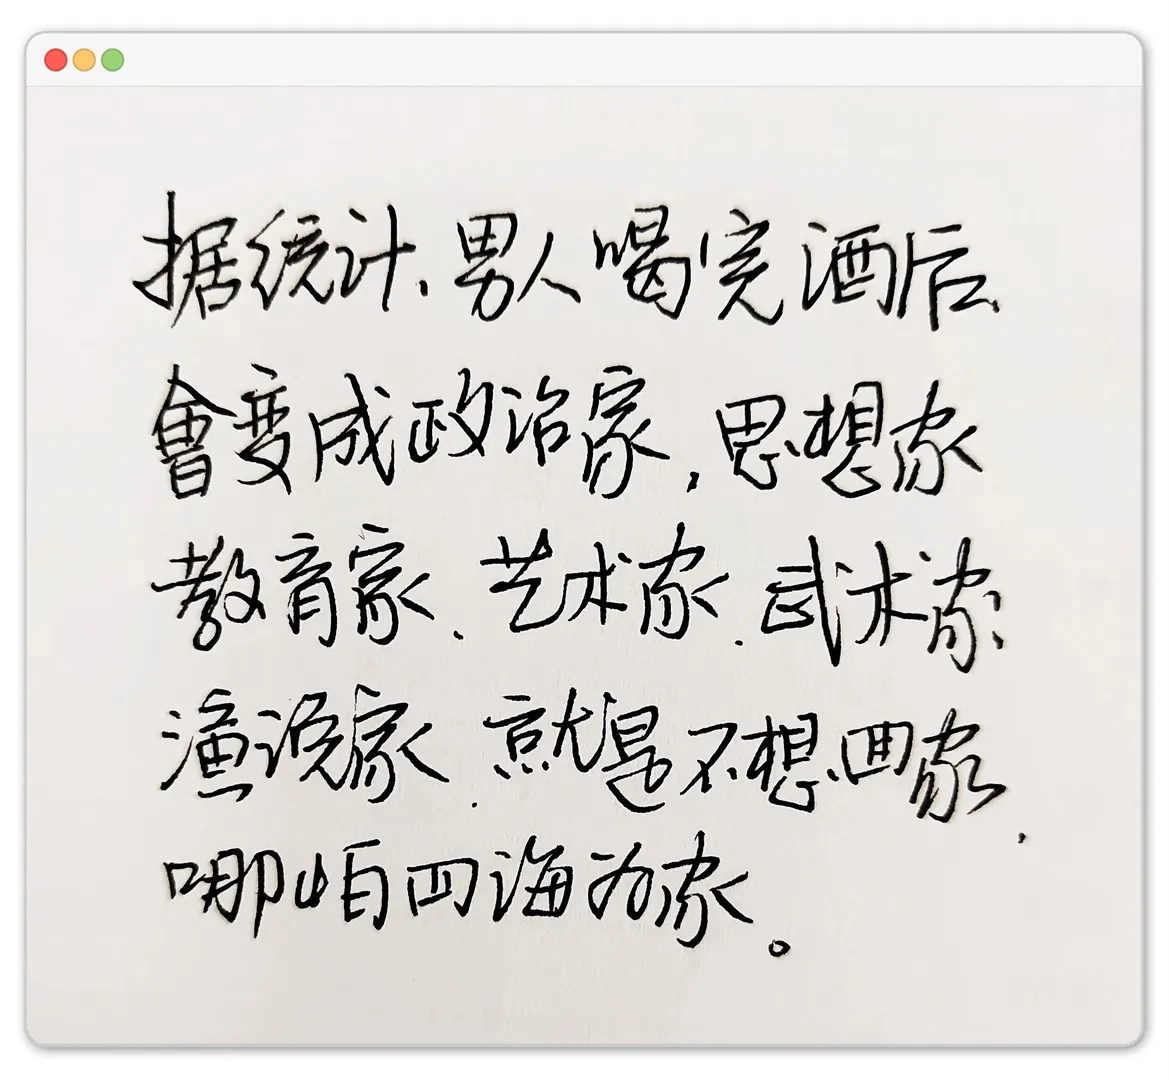 据统计、男人喝完酒后
會变成政治家，思想家
教育家、艺术家、武术家
演说家、就是不想回家，
哪怕四海为家。